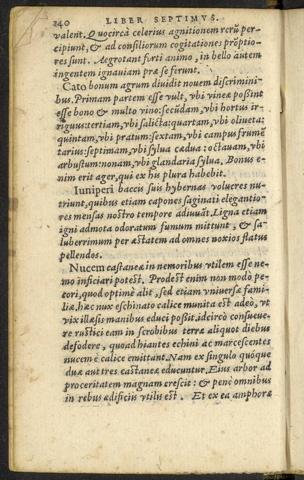 240 LIBER SEPTIMVS.
valent. Quocircà celerius agnitionem rerū per-
cipiunt, & ad consiliorum cogitationes prōptio-
res sunt. Aegrotant forti animo, in bello autem
ingentem ignauiam præ se ferunt.
Cato bonum agrum diuidit nouem discrimini-
bus. Primam partem esse vult, vbi vineæ possint
esse bono & multo vino: secūdam, vbi hortus ir-
riguus: tertiam, vbi salicta: quartam, vbi oliueta:
quintam, vbi pratum: sextam, vbi campus frumē
tarius: septimam, vbi sylua cædua: octauam, vbi
arbustum: nonam, vbi glandaria sylua. Bonus e-
nim erit ager, qui ex his plura habebit.
Iuniperi baccis suis hybernas volucres nu-
triunt, quibus etiam capones saginati elegantio-
res mensas nostro tempore adiuuāt. Ligna etiam
igni admota odoratum fumum mittunt, & sa-
luberrimum per æstatem ad omnes noxios flatus
pellendos.
Nucem castaneæ in nemoribus vtilem esse ne-
mo inficiari potest. Prodest enim non modò pe-
cori, quod optimè alit, sed etiam vniuersæ fami-
liæ. hæc nux eschinato calice munita est adeò, vt
vix illæsis manibus educi possit. ideircò consueue-
re rustici eam in scrobibus terræ aliquot diebus
defodere, quoad hiantes echini ac marcescentes
nucem è calice emittant. Nam ex singulo quoque
duæ aut tres castaneæ educuntur. Eius arbor ad
proceritatem magnam crescit: & penè omnibus
in rebus ædificiis vtilis est. Et ex ea amphoræ